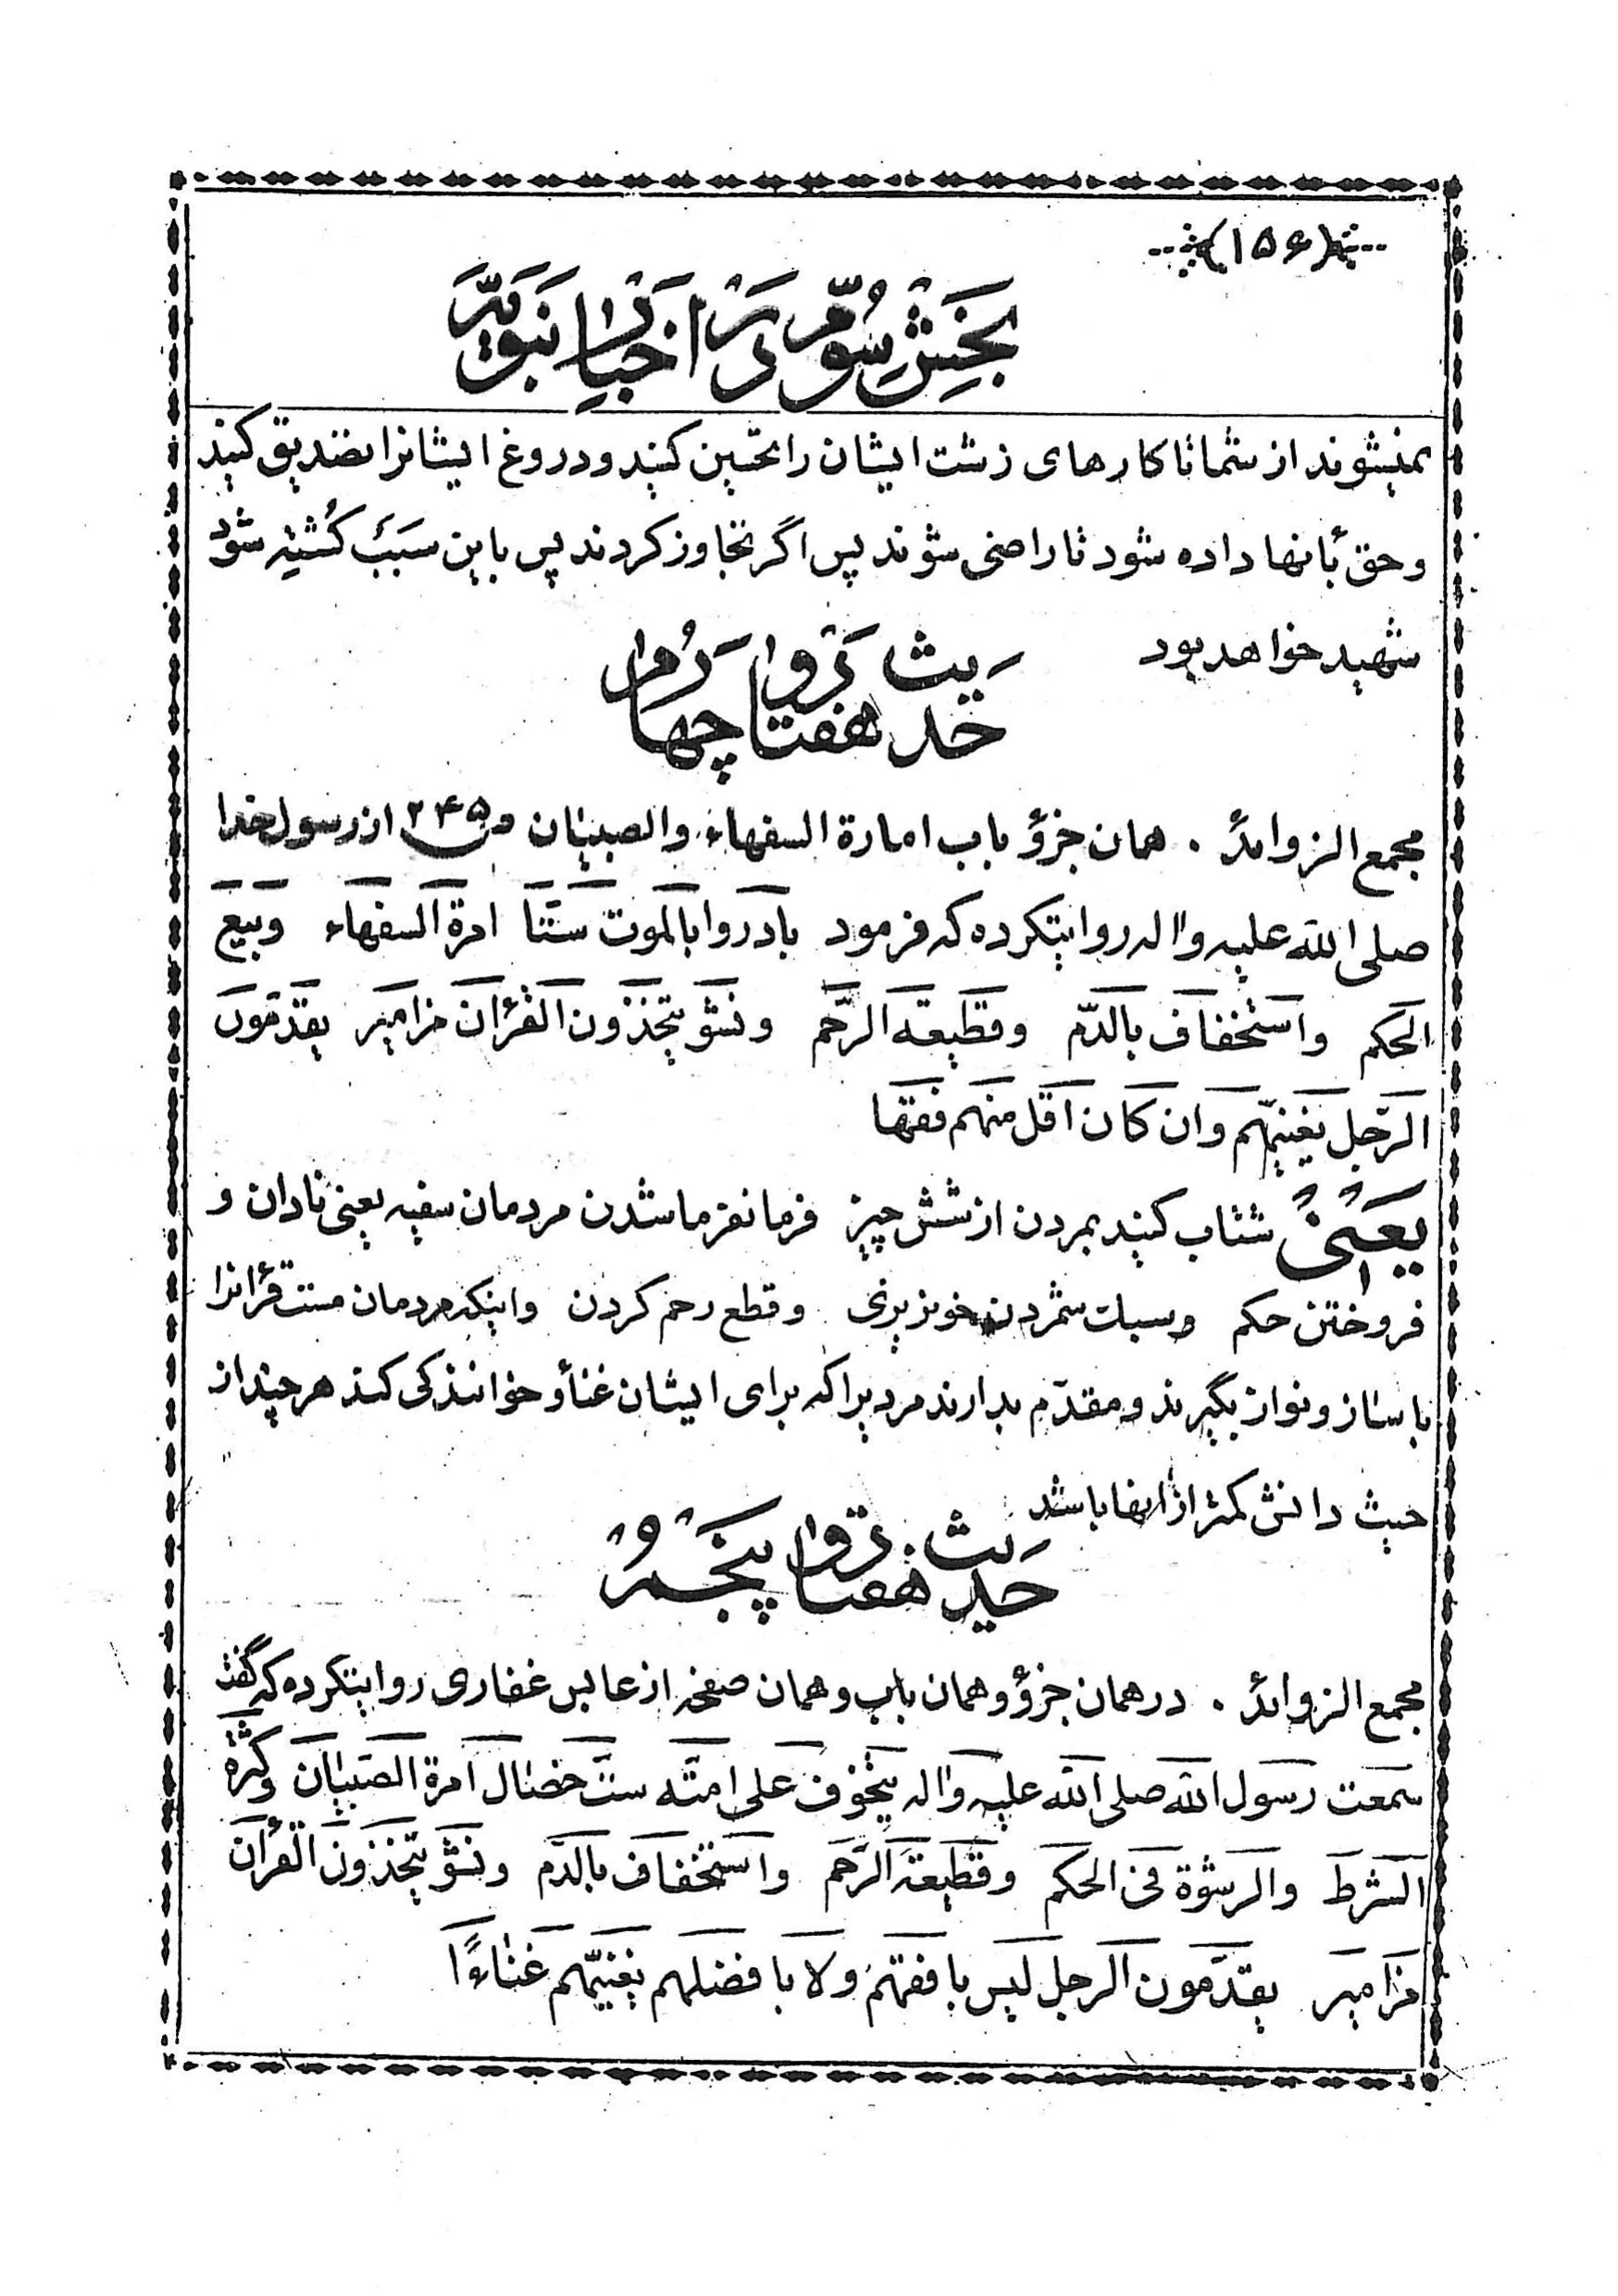 (۱۵۶)
بخش سوم در اخبار نبویه
نمیشوند از شما تا کارهای زشت ایشان را تحسین کنید و دروغ ایشانرا تصدیق کنید
و حق بأنها داده شود تا راضی شوند پس اگر تجاوز کردند پس باین سبب کشته شود
شهید خواهد بود
حدیث هفتاد و چهارم
مجمع الزوائد . همان جزؤ باب امارة السفهاء والصبیان ص ۲۴۵ از رسول خدا
صلی الله علیه واله روایتکرده که فرمود بادروا بالموت ستّا امرة السفهاء وبیع
الحکم واستخفاف بالدّم وقطیعة الرّحم ونشو یتّخذون القرآن مزامیر یقدّمون
الرّجل یغنّیهم وان کان اقل منهم فقها
یعنی شتاب کنید بمردن از شش چیز فرمانفرما شدن مردمان سفیه یعنی نادان و
فروختن حکم وسبک شمردن خونریزی وقطع رحم کردن واینکه مردمان مست قرآنرا
با ساز و نواز بگیرند و مقدّم بدارند مردیرا که برای ایشان غنأ و خوانندکی کند هر چند از
حیث دانش کمتر از انها باشد
حدیث هفتاد و پنجم
مجمع الزوائد . در همان جزؤ و همان باب و همان صفحه از عابس غفاری روایتکرده که گفت
سمعت رسول الله صلی الله علیه واله یتخوّف علی امّته ستّ خصال امرة الصّبیان وکثرة
الشّرط والرشوة فی الحکم وقطیعة الرّحم واستخفاف بالدّم ونشو یتّخذون القرآن
مزامیر یقدّمون الرجل لیس بافقههم ولا بافضلهم یغنّیهم غناءً